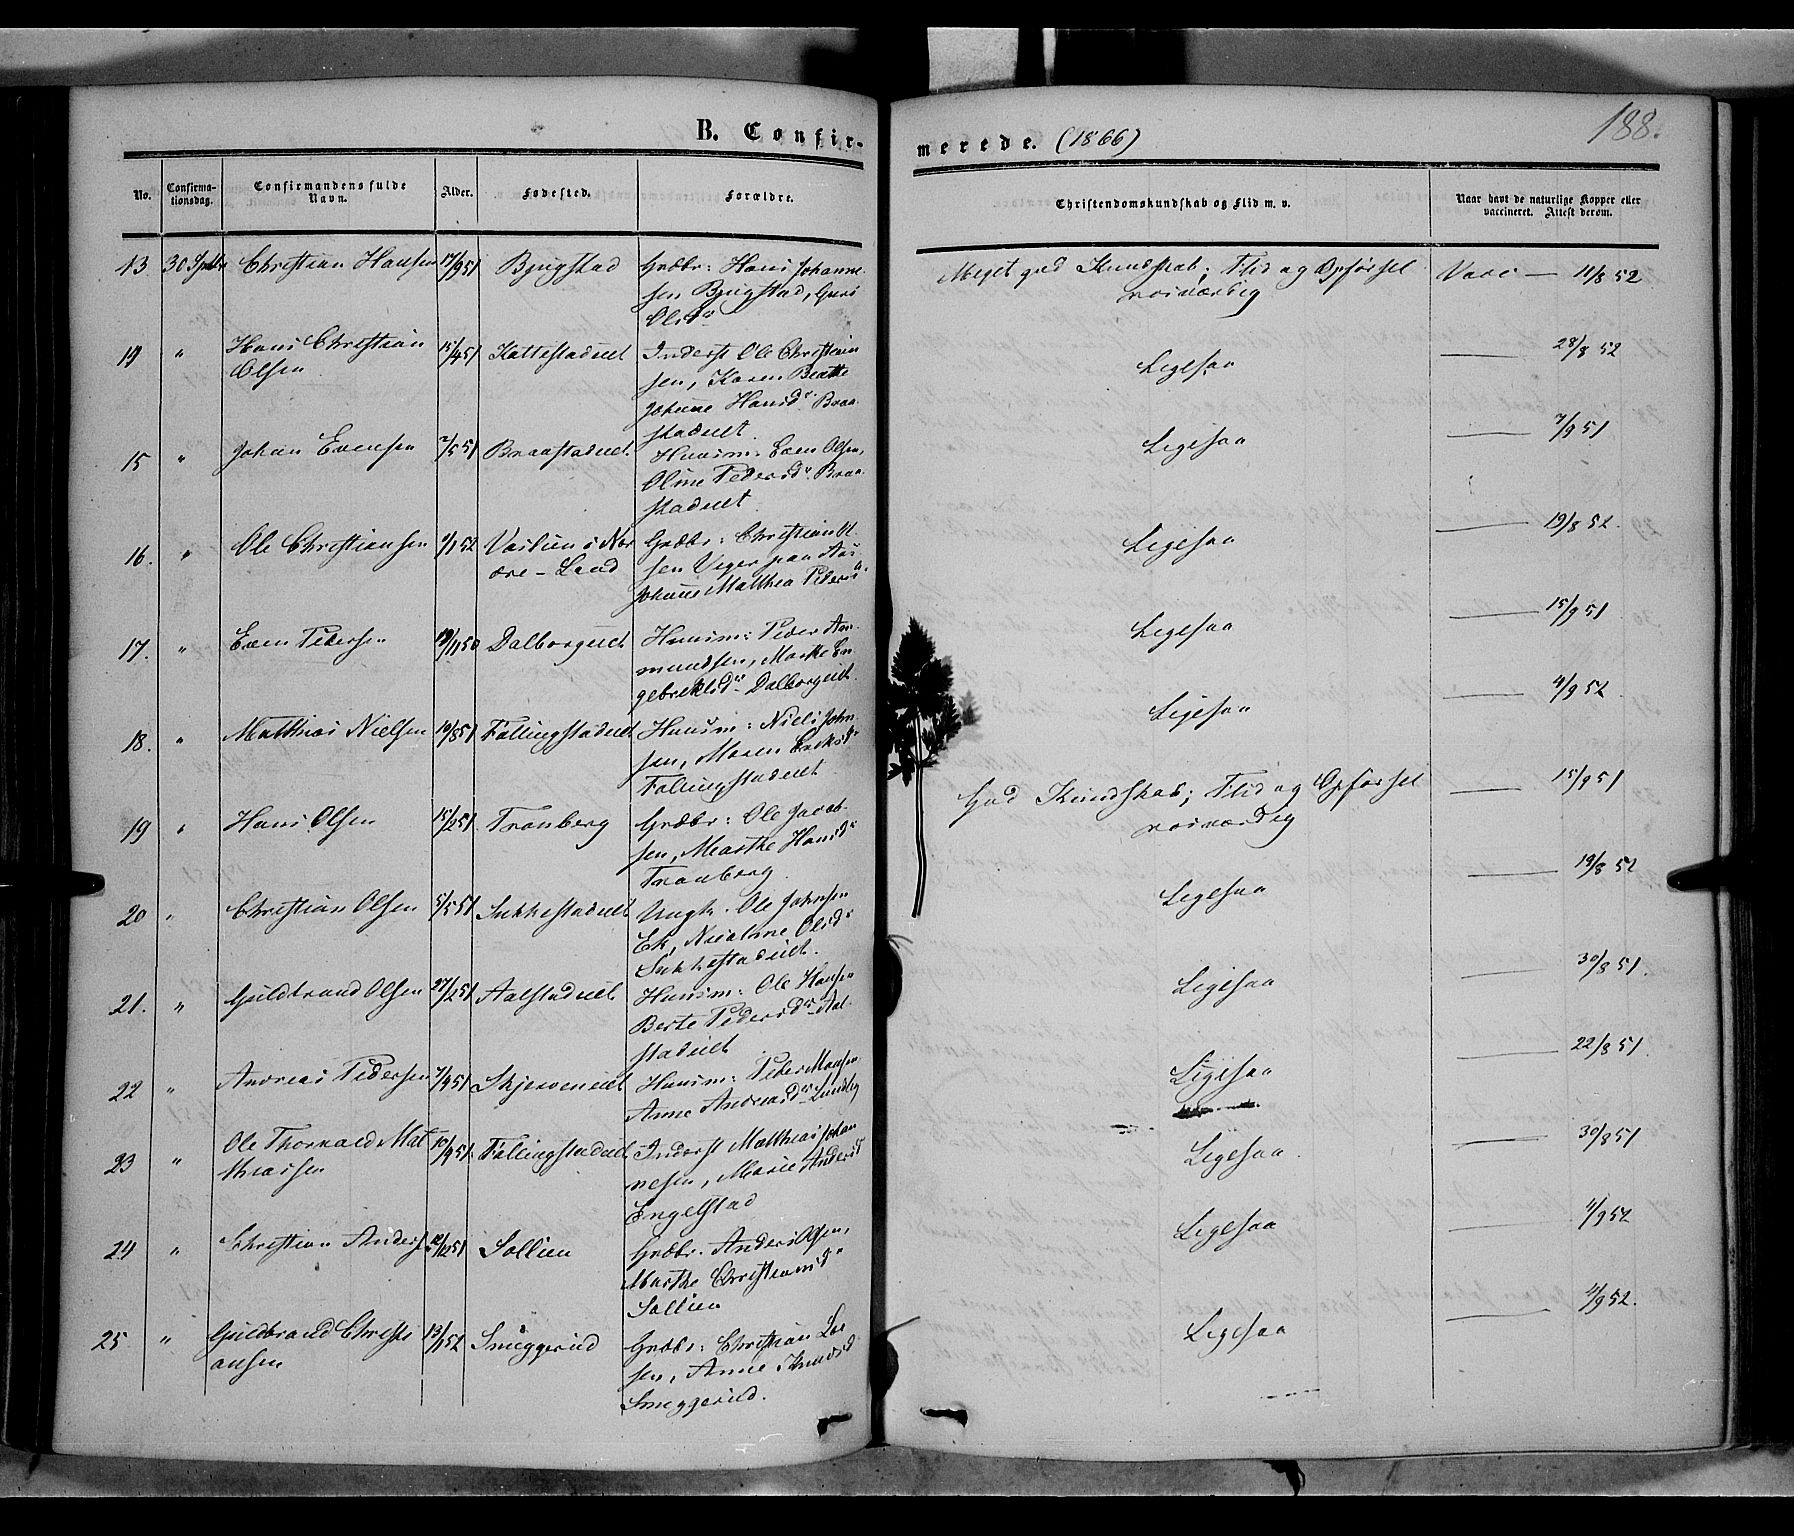 B. Confir-
merede. (1866)
188.
No.
Confirma-
tionsdag.
Confirmandens fulde
Navn.
Alder.
Fødested.
Forældre.
Christendomskundskab og Flid m. v.
Naar havt de naturlige Kopper eller
vaccineret. Attest derom.
13 30 Sptbr Christian Hansen 17/9 51 Bjugstad Grdbr: Hans Johanne-
sen Bjugstad, Guri
Olsdr
Meget god Kundskab; Flid og Opførsel
rosværdig
Vacc — 11/8 52
14 " Hans Christian 15/4 51 Kattestadeiet Inderst Ole Christian
Olsen sen, Karen Beatte
Johanne Hansdr Braa-
stadeiet.
Ligesaa — 28/8 52
15 " Johan Evensen 2/5 51 Braastadeiet Huusm: Even Olsen,
Oline Pedersdr Braa-
stadeiet
Ligesaa — 7/9 51
16. " Ole Christiansen 1/1 52 i Nor Grdbr: Christian Ol
dre-Land sen
Johanne Matthea Pedersdr
Ligesaa — 19/8 52
17. " Even Pedersen 19/11 50 Dalborgeiet Huusm: Peder Am-
mundsen, Marthe En-
gebretsdr Dalborgeiet
Ligesaa — 15/9 51
18. " Matthias Nielsen 19/8 51 Fallingstadeiet Huusm: Niels John-
sen, Maren Eriksdr
Fallingstadeiet
Ligesaa — 4/9 52
19 " Hans Olsen 15/2 51 Tranberg Grdbr: Ole Jacob-
sen, Marthe Hansdr
Tranberg.
God Kundskab; Flid og Opførsel
rosværdig
— 15/9 51
20 " Christian Olsen 5/5 51 Sukkestadeiet Ungk. Ole Johnsen
Ek, Nicoline Olsdr
Sukkestadeiet.
Ligesaa — 19/8 52
21. " Guldbrand Olsen 27/2 51 Aalstadeiet Huusm: Ole Hansen
Berte Pedersdr Aal-
stadeiet
Ligesaa — 30/8 51.
22 " Andreas Pedersen 7/9 51 Skjesveneiet Huusm: Peder Hansen
Anne Andreasdr
Ligesaa — 22/8 51.
23 " Ole Thorvald Mat 10/9 51. Fallingstadeiet Inderst Matthias Johan
thiassen nesen, Marie Andersd
Engelstad
Ligesaa. — 30/8 51
24 " Christian Anders 12/12 51 Sollien Grdbr. Anders Olsen,
Marthe Christiansdr
Sollien
Ligesaa — 4/9 52
25 " Guldbrand Christi 13/1 52 Smeggerud Grdbr: Christian Lar
ansen sen, Anne Knudsd
Smeggerud.
Ligesaa — 4/9 52.